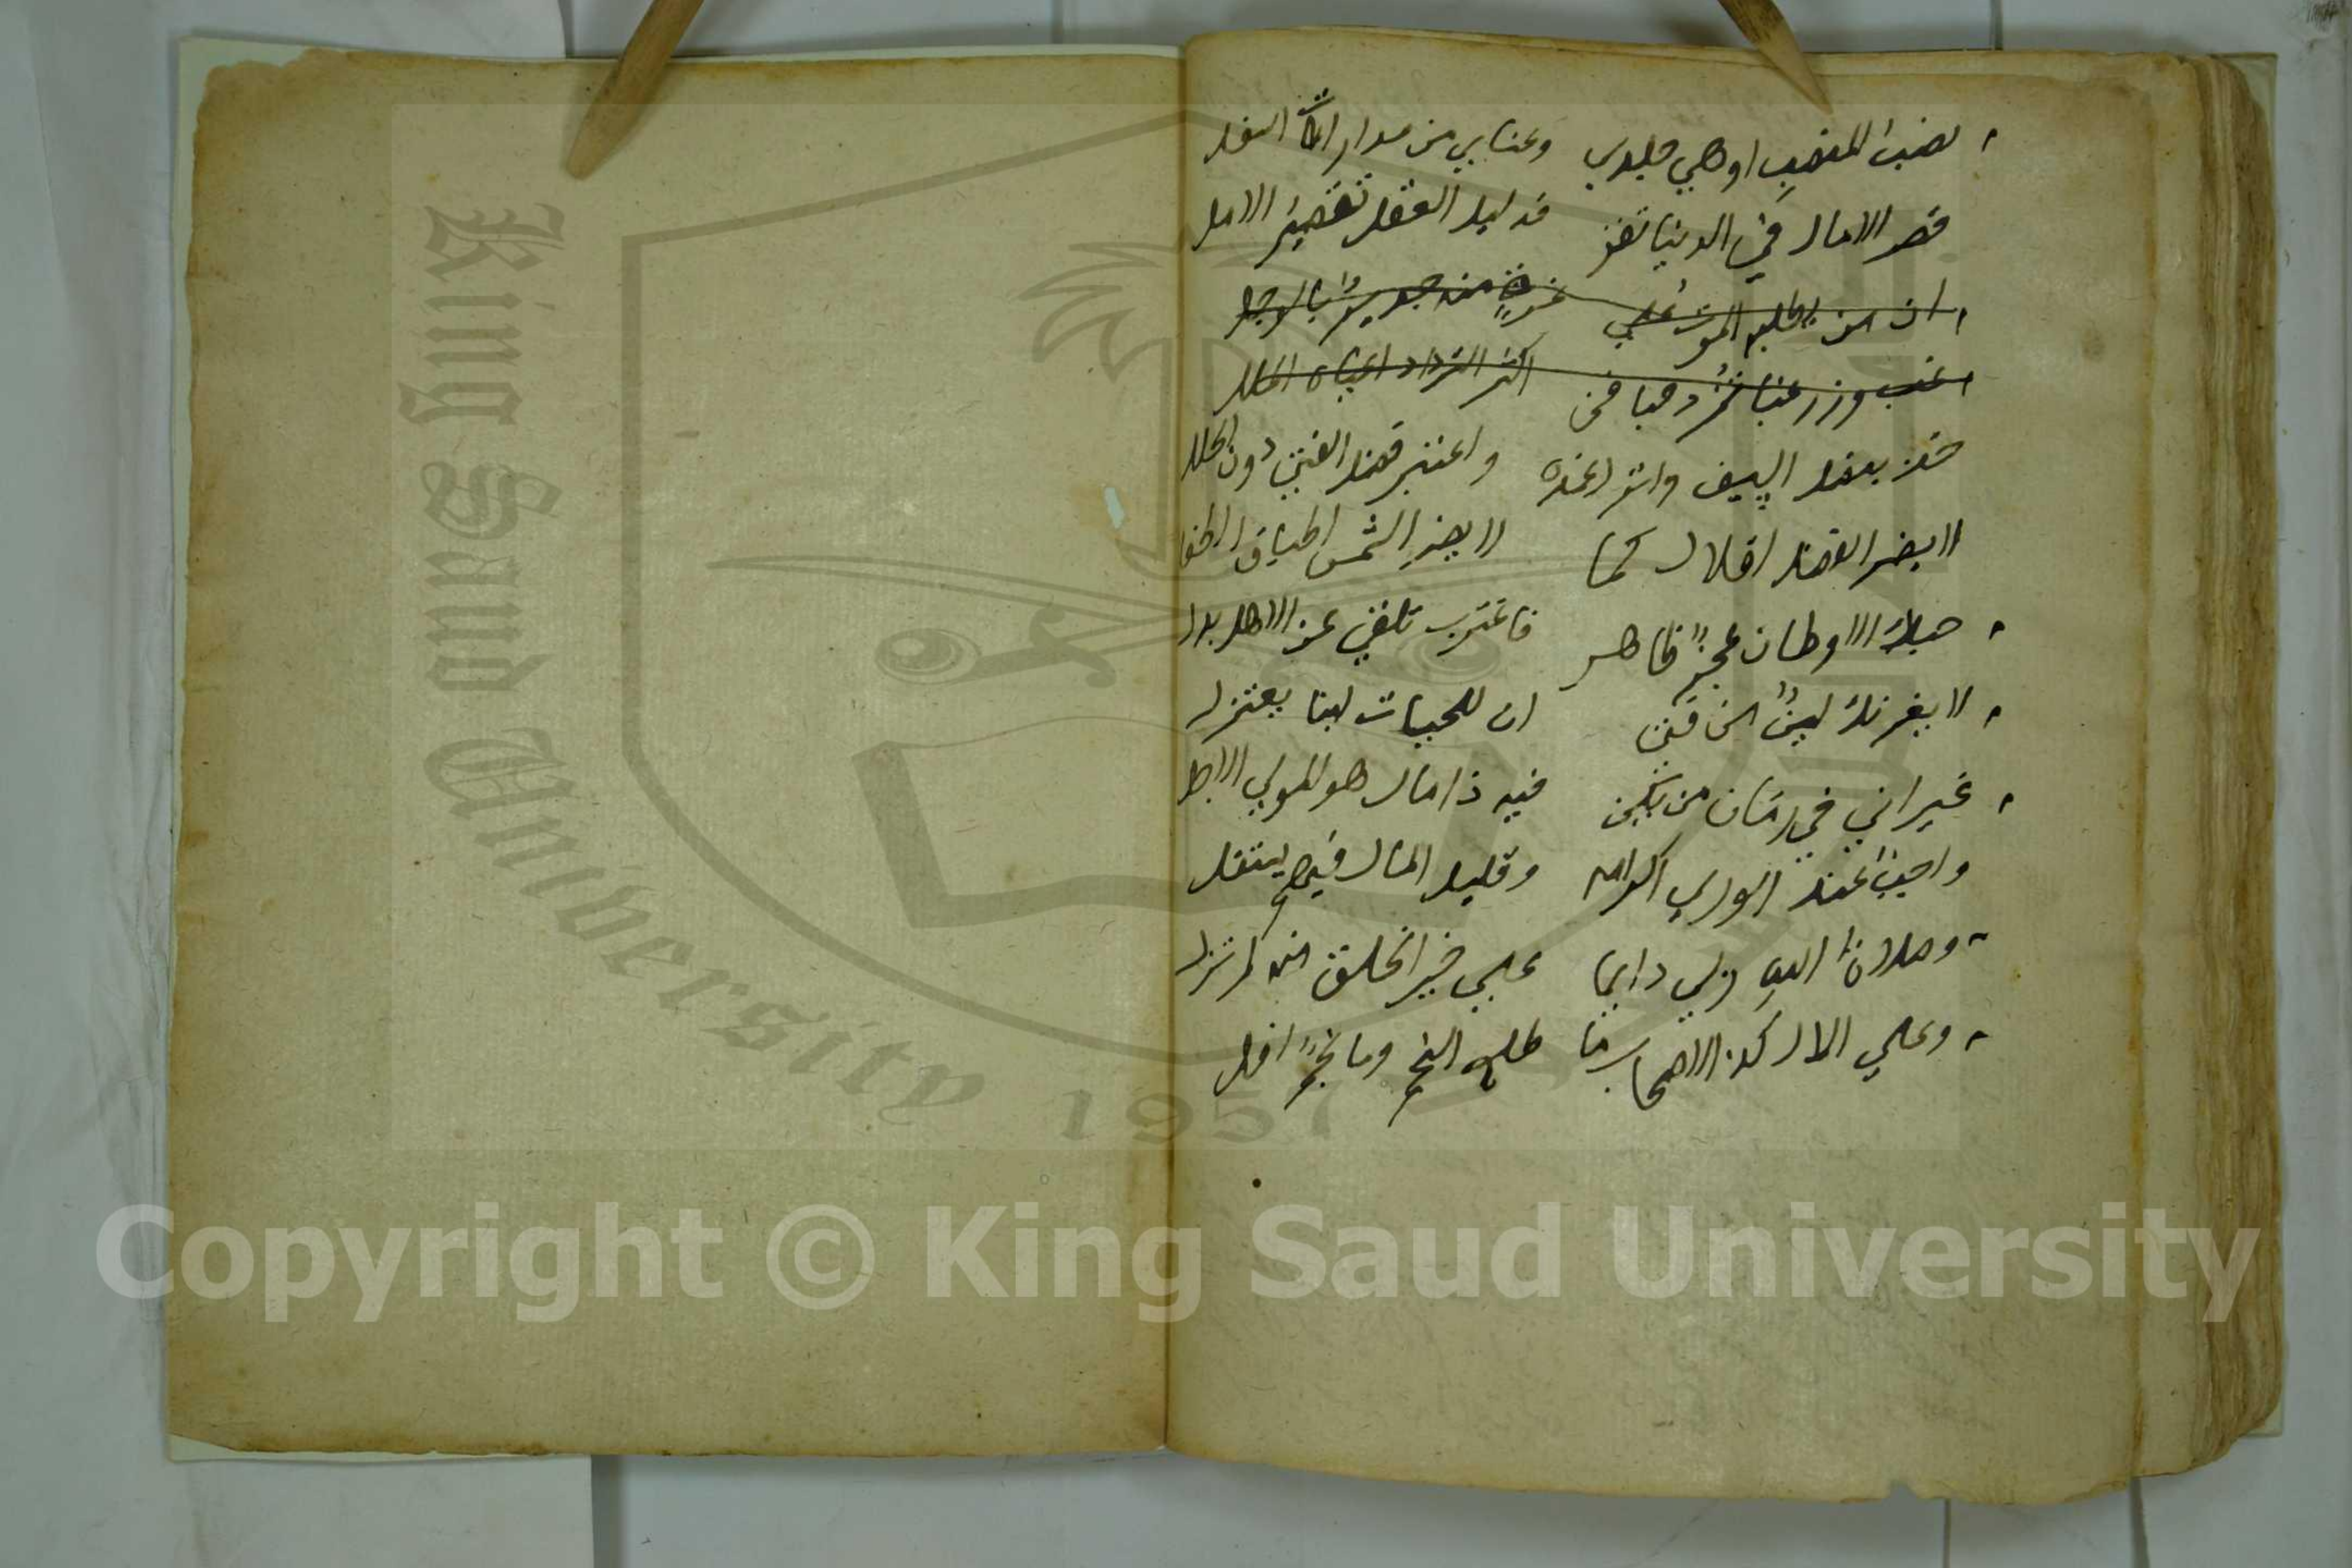 نصب المنصب اوهي جلدي وعنايي من مدارات السفل
قصر الامال في الدنيا تفز فدليل العقل تقصير الامل
ان من يطلبه الموت علي غرة منه جدير بالوجل
غب وزر غبا تزد حبا فمن اكثر الترداد اقصاه الملل
خذ بنصل السيف واترك غمده واعتبر فضل الفتي دون الحلل
لا يضر الفضل اقلال كما لا يضر الشمس اطباق الطفل
حبك الاوطان عجز ظاهر فاغترب تلقي عن الاهل بدل
لا يغرنك لين من فتي ان للحيات لينا يعتزل
غير اني في زمان من يكن فيه ذا مال هو المولي الاجل
واجب عند الوري اكرامه وقليل المال فيهم يستقل
وصلاة الله ربي دايما علي خير الخلق من لم تزل
وعلي الال كذا الاصحاب ما طلع النجم وما نجم افل
King Saud University
1957
Copyright © King Saud University